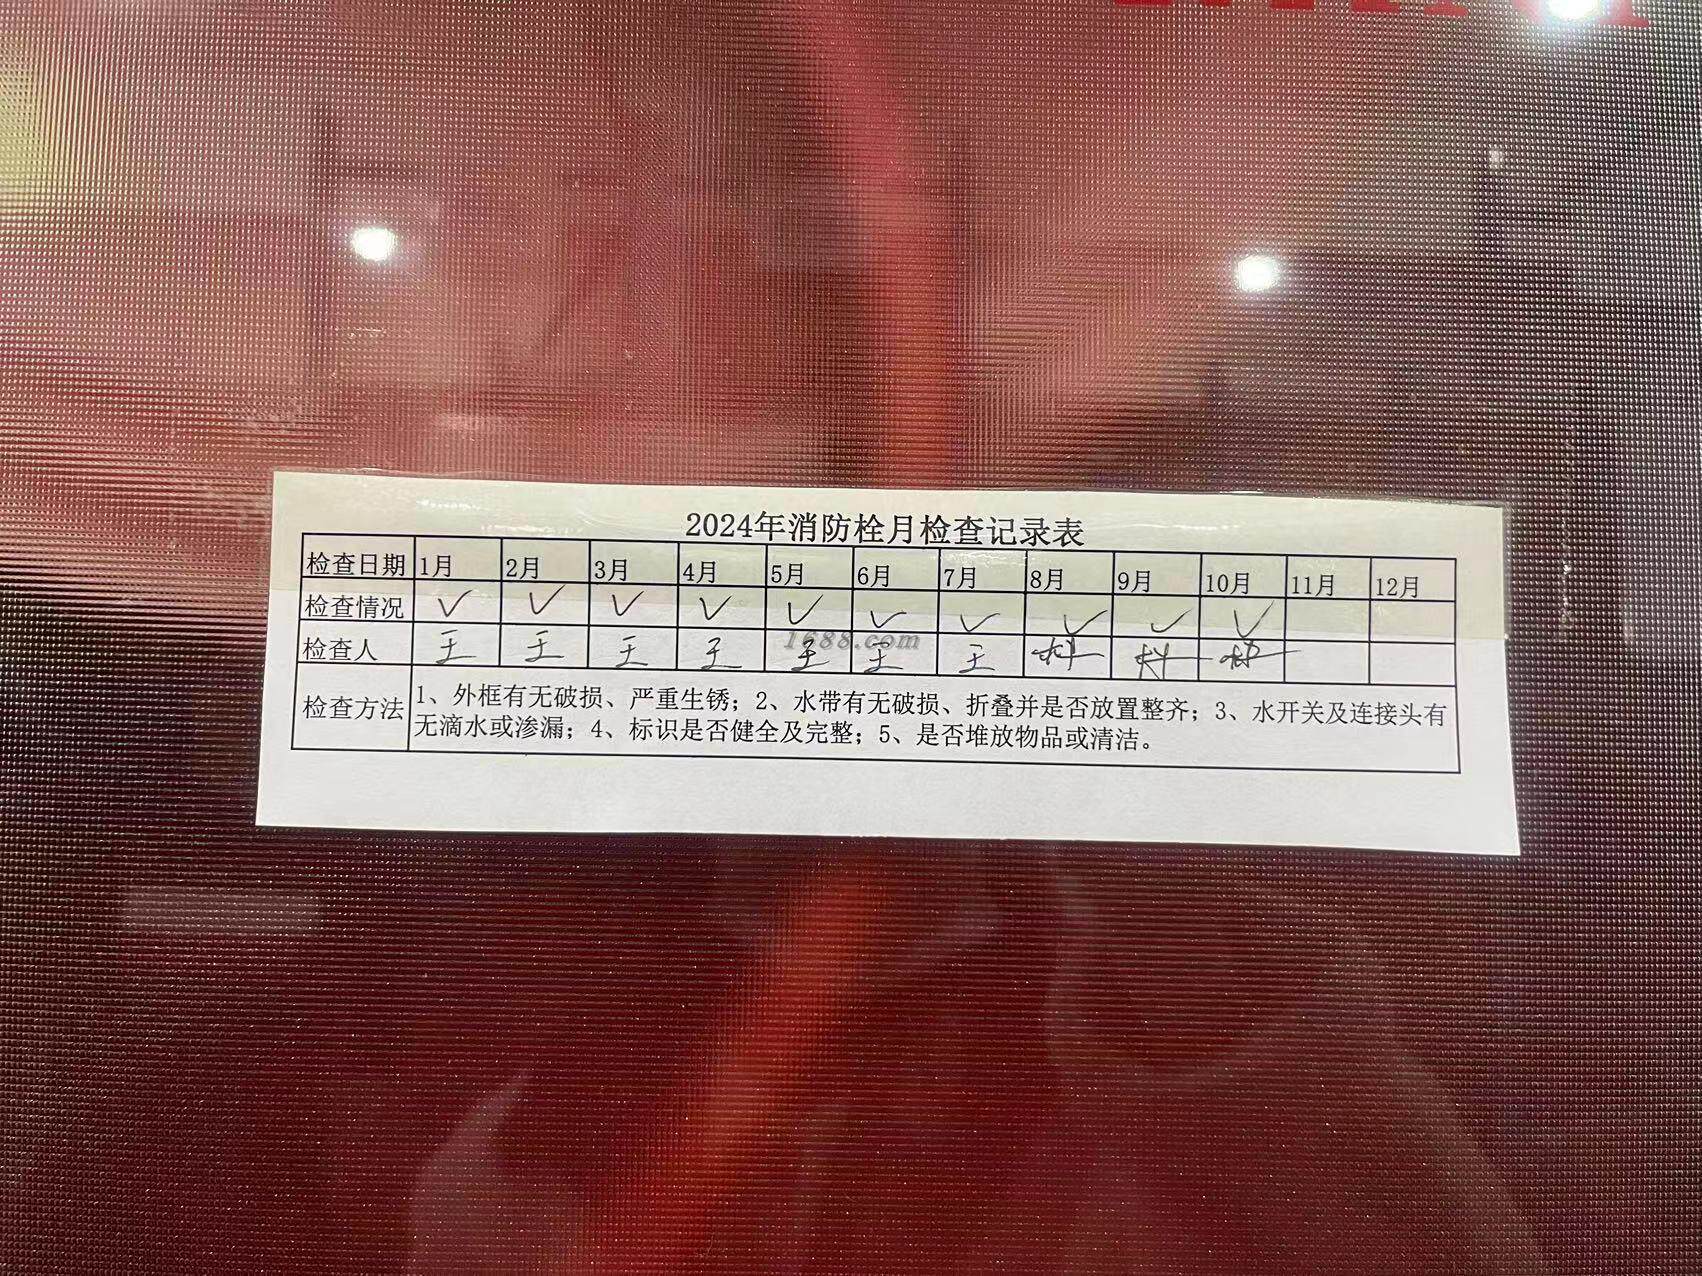 2024年消防栓月检查记录表
检查日期 1月 2月 3月 4月 5月 6月 7月 8月 9月 10月 11月 12月
检查情况 ✓ ✓ ✓ ✓ ✓ ✓ ✓ ✓ ✓ ✓
检查人 王 王 王 王 王 王 王
1688.com
检查方法 1、外框有无破损、严重生锈；2、水带有无破损、折叠并是否放置整齐；3、水开关及连接头有
无滴水或渗漏；4、标识是否健全及完整；5、是否堆放物品或清洁。